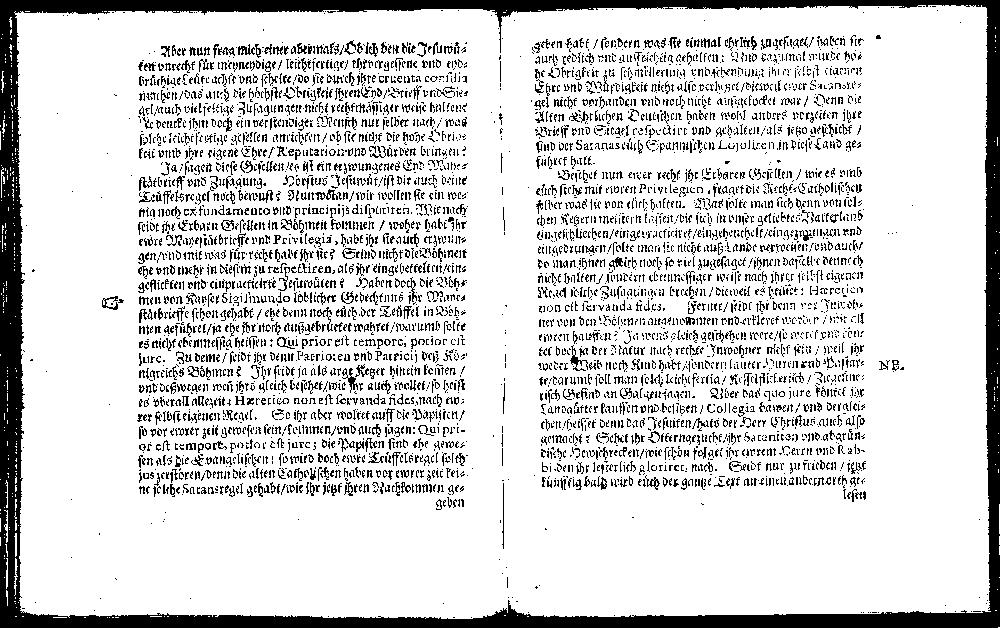 Aber nun frag mich einer abermals/ Ob ich den die Jesuwü-
ten unrecht für meyneydige/ leichtfertige/ ehrvergessene und eyd-
brüchige Leute achte und schelte/ do sie durch ihre cruenta consilia
machen/ das auch die höchste Obrigkeit ihren Eyd/ Brieff und Sie-
gel/ auch vielfeltige Zusagungen nicht rechtmässiger weise haltene
Je dencke ihm doch ein verstendiger Mensch nur selber nach/ was
solche leichtfertige gesellen anrichten/ ob sie nicht die hohe Obrig-
keit vnd ihre eigene Ehre/ Reputation vnd Würden bringen?
Ja/ sagen diese Gesellen/ es ist ein erzwungenes Eyd Maye-
stätbrieff vnd Zusagung. Horstus Jesuwüt/ ist dir auch deine
Teuffelsregel noch bewust? Nun wolan/ wir wollen sie ein we-
nig noch ex fundamento vnd principijs disputiren. Wie nach
seidt ihr Erbarn Gesellen in Böhmen kommen/ woher habt ihr
ewre Mayestätbrieffe vnd Privilegia, habt ihr sie auch erzwun-
gen/ vnd mit was für recht habt ihr sie? Seind nicht die Böhmen
ehe vnd mehr in diesem zu respectiren, als ihr eingebettelten/ ein-
geflickten vnd einpracticirte Jesuwüten? Haben doch die Böh-
men von Kayser Sigismundo löblicher Gedechtnus ihr Maye-
stätbrieffe schon gehabt/ ehe denn noch euch der Teuffel in Böh-
men geführet/ ja ehe ihr noch außgebrütet wahret/ warumb solte
es nicht ebenmessig heissen: Qui prior est tempore, potior est
jure. Zu deme/ seidt ihr denn Patrioten vnd Patricij deß Kö-
nigreichs Böhmen? Ihr seidt ja als arge Ketzer hinein komen/
vnd deßwegen wen ihrs gleich besehet/ wie ihr auch wollet/ so heist
es vberall allezeit: Hæretico non est servanda fides, nach ew-
rer selbst eigenen Regel. So ihr aber woltet auff die Papisten/
so vor ewrer zeit gewesen sein/ kommen/ vnd auch sagen: Qui pri-
or est tempore, potior est jure; die Papisten sind ehe gewe-
sen als die Evangelischen: so wird doch ewre Teuffelsregel solch
jus zerstören/ denn die alten Catholischen haben vor ewrer zeit kei-
ne solche Satansregel gehabt/ wie ihr jetzt ihren Nachkommen ge-
geben
geben habt/ sondern was sie einmal ehrlich zugesaget/ haben sie
auch redlich und auffrichtig gehalten: Und dazumal wurde ho-
he Obrigkeit zu schmälerung vnd schendung ihrer selbst eigenen
Ehre vnd Würdigkeit nicht also verhetzet/ dieweil ewer Satansre-
gel nicht vorhanden vnd noch nicht außgehecket war/ Denn die
Alten Ehrlichen Deutschen haben wohl anders vorzeiten ihre
Brieff vnd Siegel respectirt vnd gehalten/ als jetzo geschicht/
sind der Satanas euch Spannischen Lojoliten in diese Land ge-
führet hatt.
Besehet nun ewer recht ihr Erbaren Gesellen/ wie es vmb
euch stehe mit ewren Privilegien, fraget die Recht-Catholischen
selber was sie von euch halten. Was solte man sich denn von sol-
chen Ketzern meistern lassen/ die sich in vnser geliebtes Vatterland
eingeschlichen/ eingepracticiret/ eingeheuchelt/ eingezwungen vnd
eingedrungen/ solte man sie nicht auß Lande verweisen/ vnd auch/
do man ihnen gleich noch so viel zugesaget/ ihnen dasselbe dennoch
nicht halten/ sondern ebenmessiger weise nach ihrer selbst eigenen
Regel solche Zusagungen brechen/ dieweil es heisset: Hæretico
non est servanda fides. Ferner/ seidt ihr denn vor Inwoh-
ner von den Böhmen angenommen vnd erkleret worden/ mit all
ewren hauffen? Ja wens gleich geschehen were/ so weret vnd kön-
tet doch ja der Natur nach rechte Inwohner nicht sein/ weil ihr
weder Weib noch Kind habt/ sondern lauter Huren vnd Bastar-
te/ darumb soll man solch leichtfertig/ Kesselflickerisch/ Ziegeune-
risch Gesind an Galgen jagen. Uber das quo jure köntet ihr
Landgütter kauffen vnd besitzen/ Collegia bawen/ vnd derglei-
chen/ heisset denn das Jesuiten/ hats der Herr Christus auch also
gemacht? Sehet ihr Otterngezücht/ ihr Sataniten vnd abgrün-
dische Hewschrecken/ wie schön folget ihr ewrem Herrn vnd Rab-
bi den ihr lesterlich gloriret, nach. Seidt nur zu frieden/ jetzt
künfftig bald wird euch der gantze Text an einem andern orth ge-
lesen
NB.